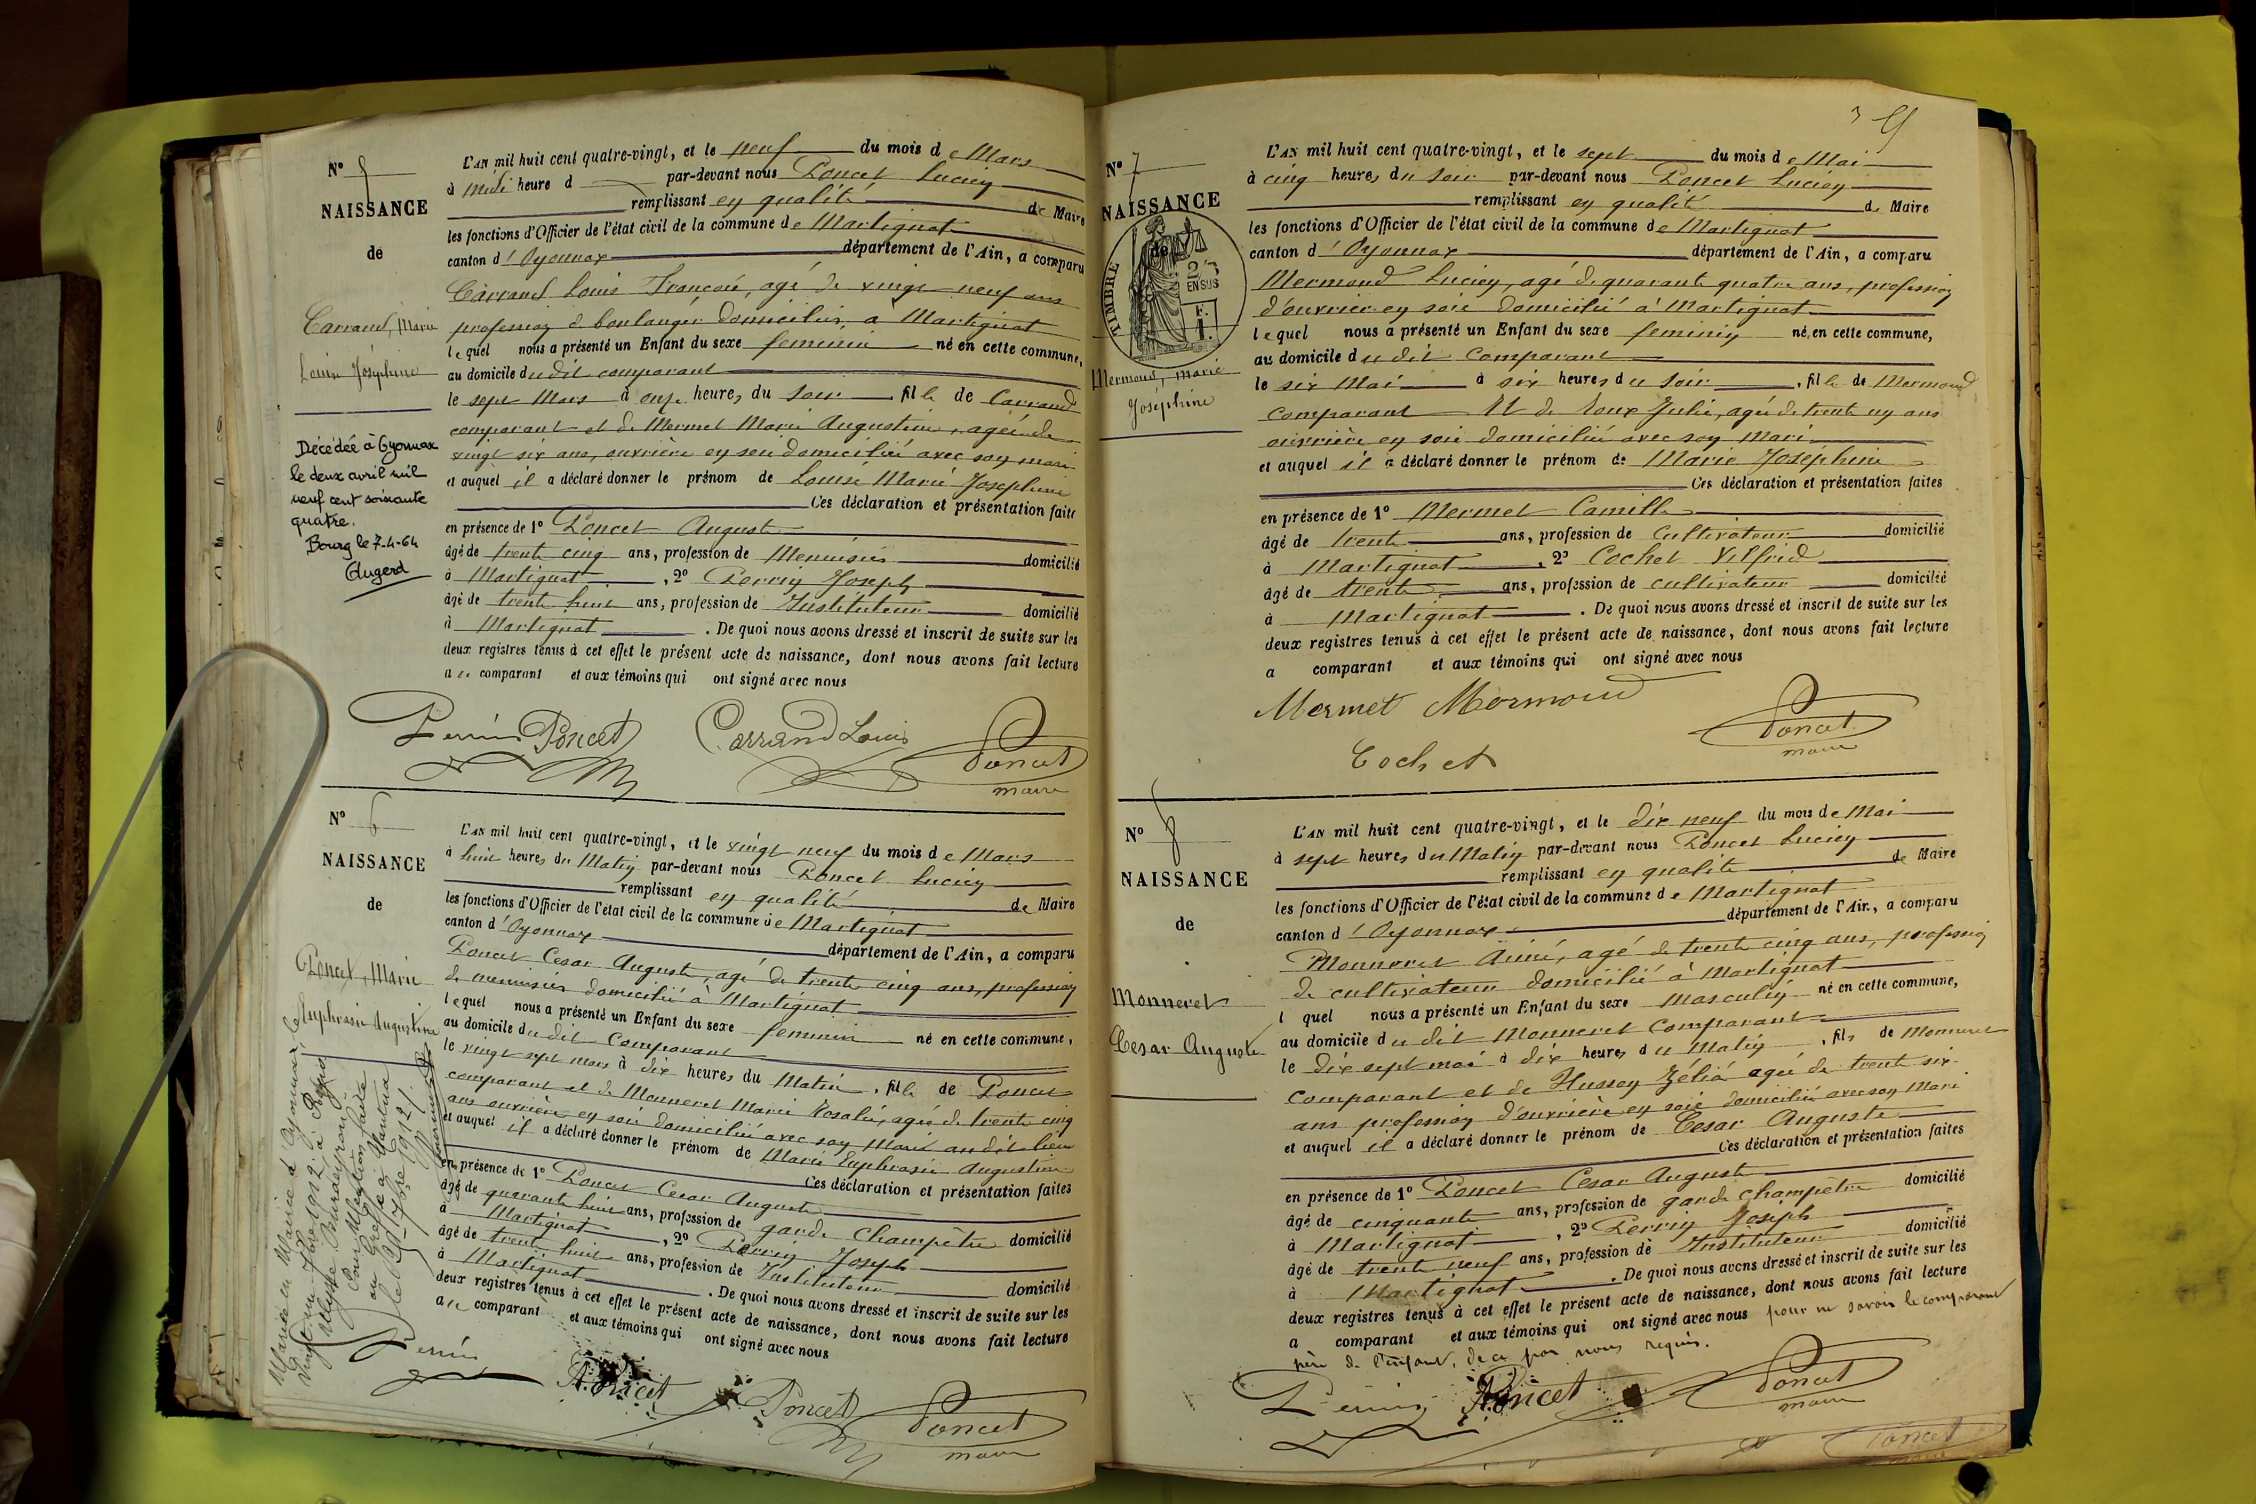 N° 5
NAISSANCE
de
Carrand, Marie
Louise Joséphine
Décédée à Oyonnax
le deux avril mil
neuf cent soixante
quatre.
Bourg le 7-4-64
Augerd
L'AN mil huit cent quatre-vingt, et le neuf du mois de Mars
à midi heure d par-devant nous Poncet Lucien
remplissant en qualité de Maire
les fonctions d'Officier de l'état civil de la commune de Martignat
canton d'Oyonnax département de l'Ain, a comparu
Carrand Louis François, agé de vingt neuf ans
profession de boulanger domicilié à Martignat
lequel nous a présenté un Enfant du sexe feminin né en cette commune,
au domicile du dit comparant
le sept Mars à onze heures du soir, fille de Carrand
comparant et de Mermet Marie Augustine, agée de
vingt six ans, ouvrière en soie domiciliée avec son mari
et auquel il a déclaré donner le prénom de Louise Marie Josephine
Ces déclaration et présentation faites
en présence de 1° Poncet Auguste
âgé de trente cinq ans, profession de Menuisier domicilié
à Martignat, 2° Perrin Joseph
âgé de trente huit ans, profession de Instituteur domicilié
à Martignat. De quoi nous avons dressé et inscrit de suite sur les
deux registres tenus à cet effet le présent acte de naissance, dont nous avons fait lecture
au comparant et aux témoins qui ont signé avec nous
Perrin Poncet Carrand Louis Poncet
maire
N° 6
NAISSANCE
de
Poncet, Marie
Euphrasie Augustine
Mariée en Mairie d'Oyonnax le
L'AN mil huit cent quatre-vingt, et le vingt neuf du mois de Mars
à huit heures du Matin par-devant nous Poncet Lucien
remplissant en qualité de Maire
les fonctions d'Officier de l'état civil de la commune de Martignat
canton d'Oyonnax département de l'Ain, a comparu
Poncet Cesar Auguste, agé de trente cinq ans, profession
de menuisier domicilié à Martignat
lequel nous a présenté un Enfant du sexe feminin né en cette commune,
au domicile du dit comparant
le vingt sept mars à dix heures du Matin, fille de Poncet
comparant et de Monneret Marie Rosalie, agée de trente cinq
ans ouvrière en soie domiciliée avec son Mari au dit lieu
et auquel il a déclaré donner le prénom de Marie Euphrasie Augustine
Ces déclaration et présentation faites
en présence de 1° Poncet Cesar Auguste
âgé de quarante huit ans, profession de garde champêtre domicilié
à Martignat, 2° Perrin Joseph
âgé de trente huit ans, profession de Instituteur domicilié
à Martignat. De quoi nous avons dressé et inscrit de suite sur les
deux registres tenus à cet effet le présent acte de naissance, dont nous avons fait lecture
au comparant et aux témoins qui ont signé avec nous
Perrin A. Poncet Poncet Poncet
maire
N° 7
NAISSANCE
de
TIMBRE
EN SUS
Mermoud, Marie
Joséphine
L'AN mil huit cent quatre-vingt, et le sept du mois de Mai
à cinq heures du soir par-devant nous Poncet Lucien
remplissant en qualité de Maire
les fonctions d'Officier de l'état civil de la commune de Martignat
canton d'Oyonnax département de l'Ain, a comparu
Mermoud Lucien, agé de quarante quatre ans, profession
d'ouvrier en soie domicilié à Martignat
lequel nous a présenté un Enfant du sexe feminin né en cette commune,
au domicile du dit comparant
le six Mai à six heures du soir, fille de Mermoud
comparant Et de Roux Julie, agée de trente un ans
ouvrière en soie domiciliée avec son Mari
et auquel il a déclaré donner le prénom de Marie Josephine
Ces déclaration et présentation faites
en présence de 1° Mermet Camille
âgé de trente ans, profession de Cultivateur domicilié
à Martignat, 2° Cochet Vilfrid
âgé de trente ans, profession de cultivateur domicilié
à Martignat. De quoi nous avons dressé et inscrit de suite sur les
deux registres tenus à cet effet le présent acte de naissance, dont nous avons fait lecture
a comparant et aux témoins qui ont signé avec nous
Mermet Mermoud Poncet
maire
Cochet
N° 8
NAISSANCE
de
Monneret
Cesar Auguste
L'AN mil huit cent quatre-vingt, et le dix neuf du mois de Mai
à sept heures du Matin par-devant nous Poncet Lucien
remplissant en qualité de Maire
les fonctions d'Officier de l'état civil de la commune de Martignat
canton d'Oyonnax département de l'Ain, a comparu
Monneret Aimé, agé de trente cinq ans, profession
de cultivateur domicilié à Martignat
l quel nous a présenté un Enfant du sexe Masculin né en cette commune,
au domicile du dit Monneret comparant
le dix sept mai à dix heures du Matin, fils de Monneret
comparant et de Husson Zélia agée de trente six
ans profession d'ouvrière en soie domiciliée avec son Mari
et auquel il a déclaré donner le prénom de Cesar Auguste
Ces déclaration et présentation faites
en présence de 1° Poncet Cesar Auguste
âgé de cinquante ans, profession de garde champêtre domicilié
à Martignat, 2° Perrin Joseph
âgé de trente neuf ans, profession de Instituteur domicilié
à Martignat. De quoi nous avons dressé et inscrit de suite sur les
deux registres tenus à cet effet le présent acte de naissance, dont nous avons fait lecture
a comparant et aux témoins qui ont signé avec nous pour ne savoir le comparant
père de l'enfant, de ce par nous requis.
Perrin A. Poncet Poncet
maire